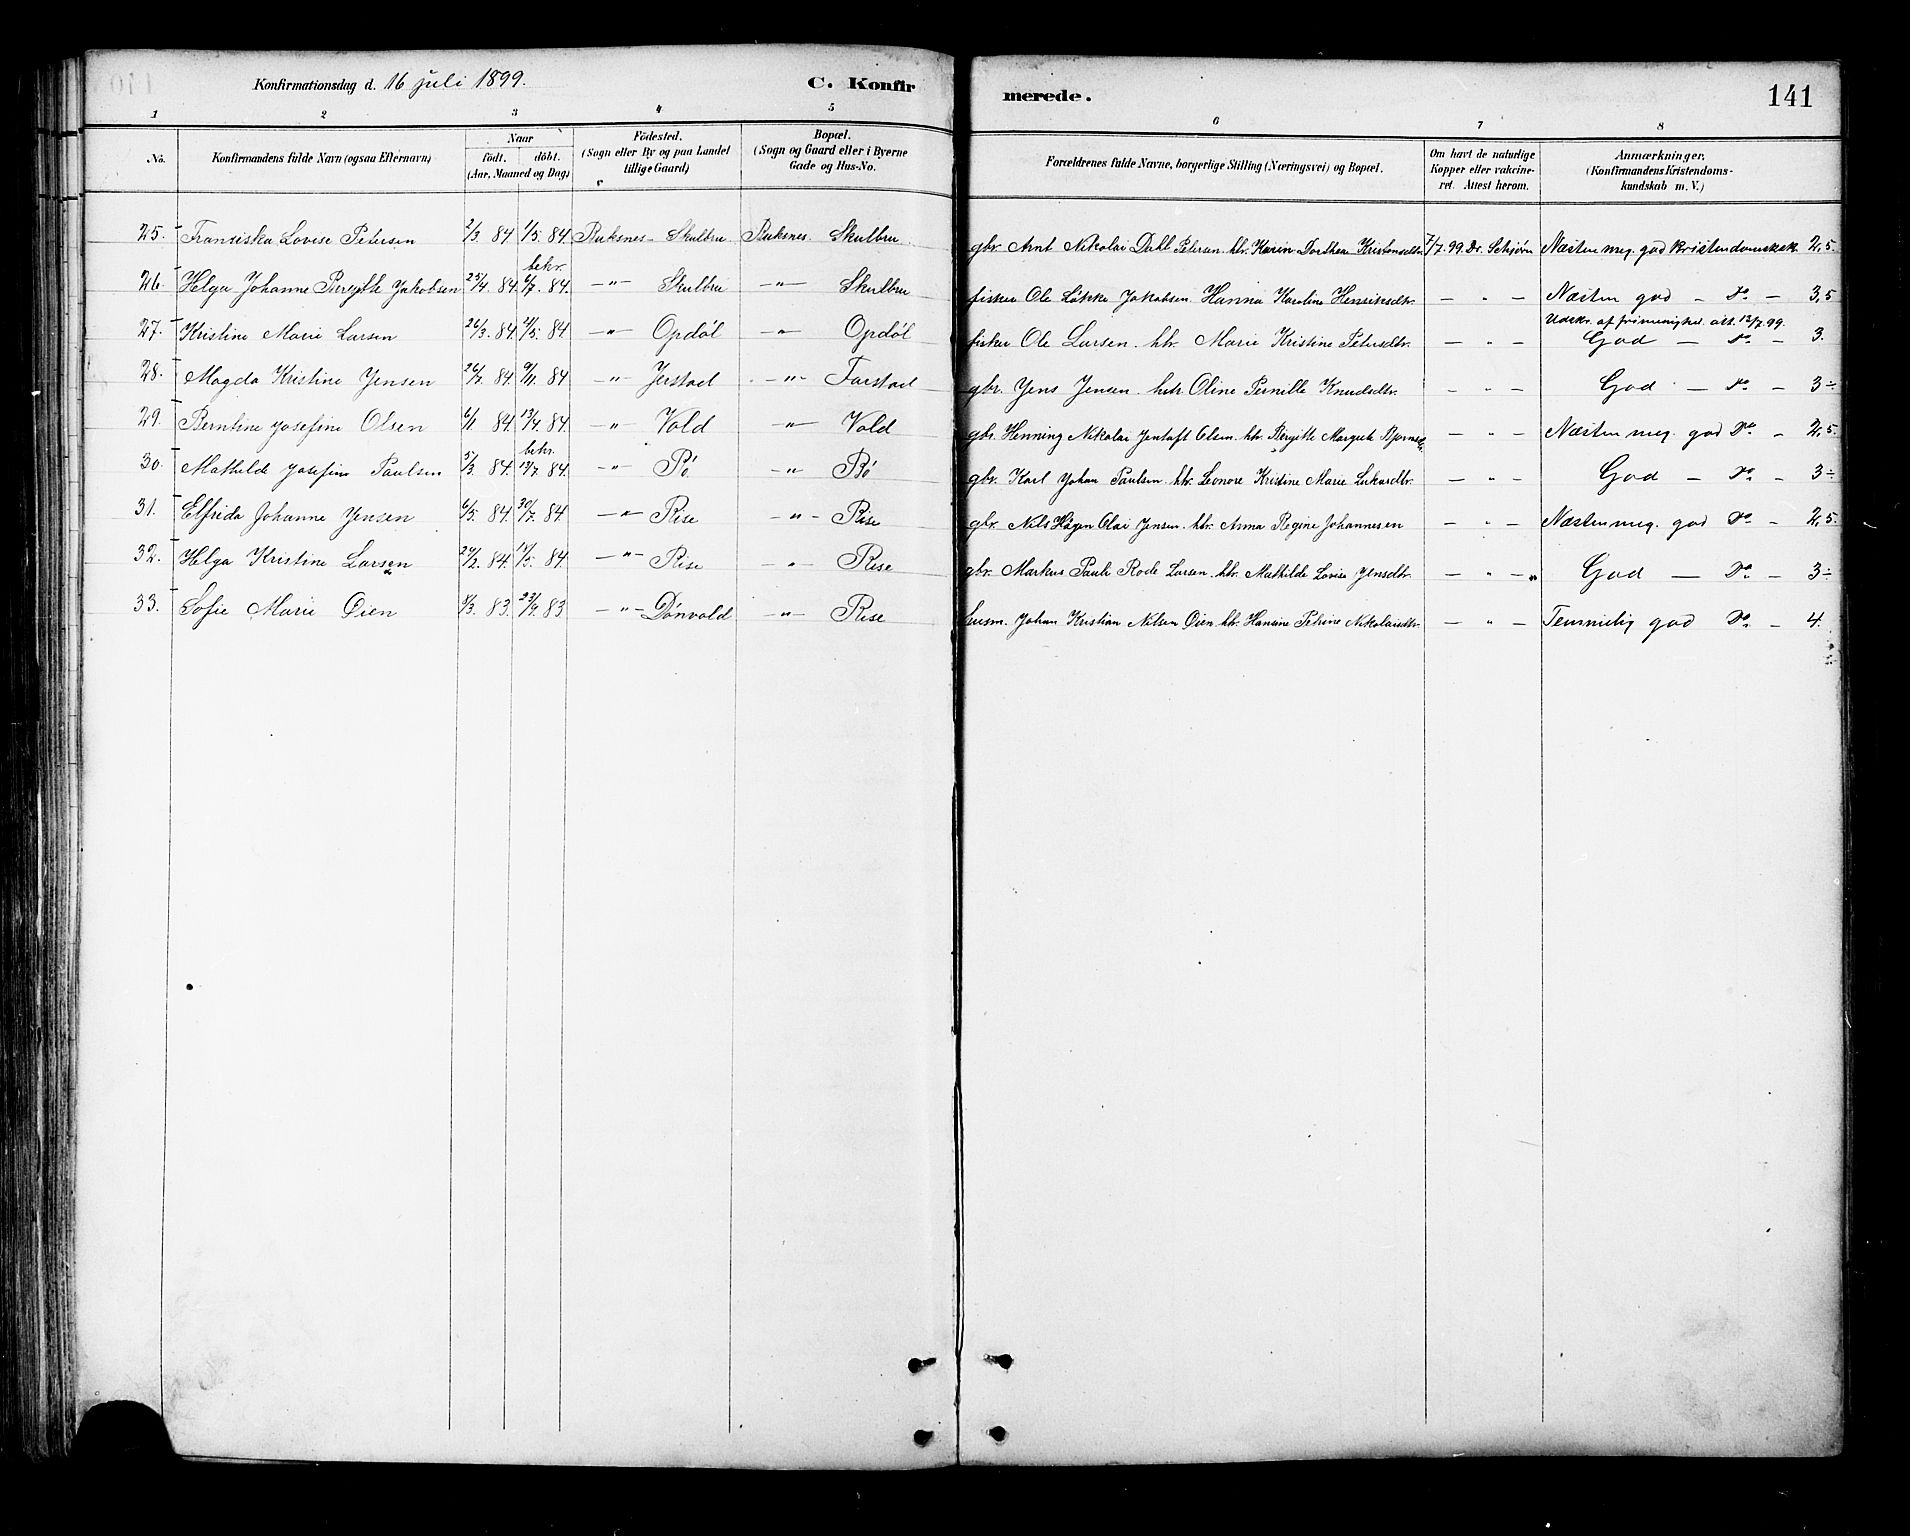 Konfirmationsdag d. 16 juli 1899. C. Konfir merede. 141
1 2 3 4 5 6 7 8
No. Konfirmandens fulde Navn (ogsaa Efternavn) Naar födt. döbt. (Aar, Maaned og Dag) Födested. (Sogn eller By og paa Landet tillige Gaard) Bopæl. (Sogn og Gaard eller i Byerne Gade og Hus-No. Forældrenes fulde Navne, borgerlige Stilling (Næringsvei) og Bopæl. Om havt de naturlige Kopper eller vakcineret. Attest herom. Anmærkninger. (Konfirmandens Kristendomskundskab m. V.)
25. Fransiska Lovise Petersen 2/3 84 1/5 84 Buksnes Skulbru Buksnes Skulbru gbr. Arnt Nikolai Dahl Petersen htr. Karin Dorthea Kristensdtr. 7/7 99 Dr. Schjörn Næsten meg. god Kristendomskdsk. 2,5
26. Helga Johanne Birgitte Jakobsen 25/4 84 bekr. 6/7 84. -"- Skulbru -"- Skulbru fisker Ole Løkke Jakobsen. Hanna Karoline Henriksdtr. - " - Næsten god - Do - 3,5
27. Kristine Marie Larsen 26/3 84 /5 84 -"- Opdøl -"- Opdøl fisker Ole Larsen. htr. Marie Kristine Petersdtr. - " - Udskr. af frimenighed. att. 12/7 99. God - Do - 3.
28. Magda Kristine Jensen 26/7 84 9/11 84 -"- Jerstad -"- Farstad gbr. Jens Jensen. htr Oline Pernille Knudsdtr. - " - God - Do - 3÷
29. Berntine Josefine Olsen 6/1 84 13/4 84. -"- Vold -"- Vold gbr. Henning Nikolai Jentoft Olsen. htr. Birgitte Margrete - " - Næsten meg. god Do - 2,5.
30. Mathilde Josefine Paulsen 5/3 84. bekr. 13/7 84 -"- Bø -"- Bø gbr. Karl Johan Paulsen. htr. Leonore Kristine Marie - " - God - Do - 3÷
31. Elfrida Johanne Jensen 6/5 84 30/7 84. -"- Rise -"- Rise gbr. Nils Hagen Olai Jensen. htr. Anna Regine Johannesen - " - Næsten meg. god Do - 2,5.
32. Helga Kristine Larsen /2 84. /5 84. -"- Rise -"- Rise gbr. Markus Pauli Rode Larsen. htr. Mathilde Lovise Jensdtr. - " - God - Do - 3÷
33. Sofie Marie Øien /3 83. 23/9 83 -"- Dønvold -"- Rise husm. Johan Kristian Nilsen Øien. htr. Hansine Petrine Nikolaisdtr. - " - Temmelig god Do - 4.